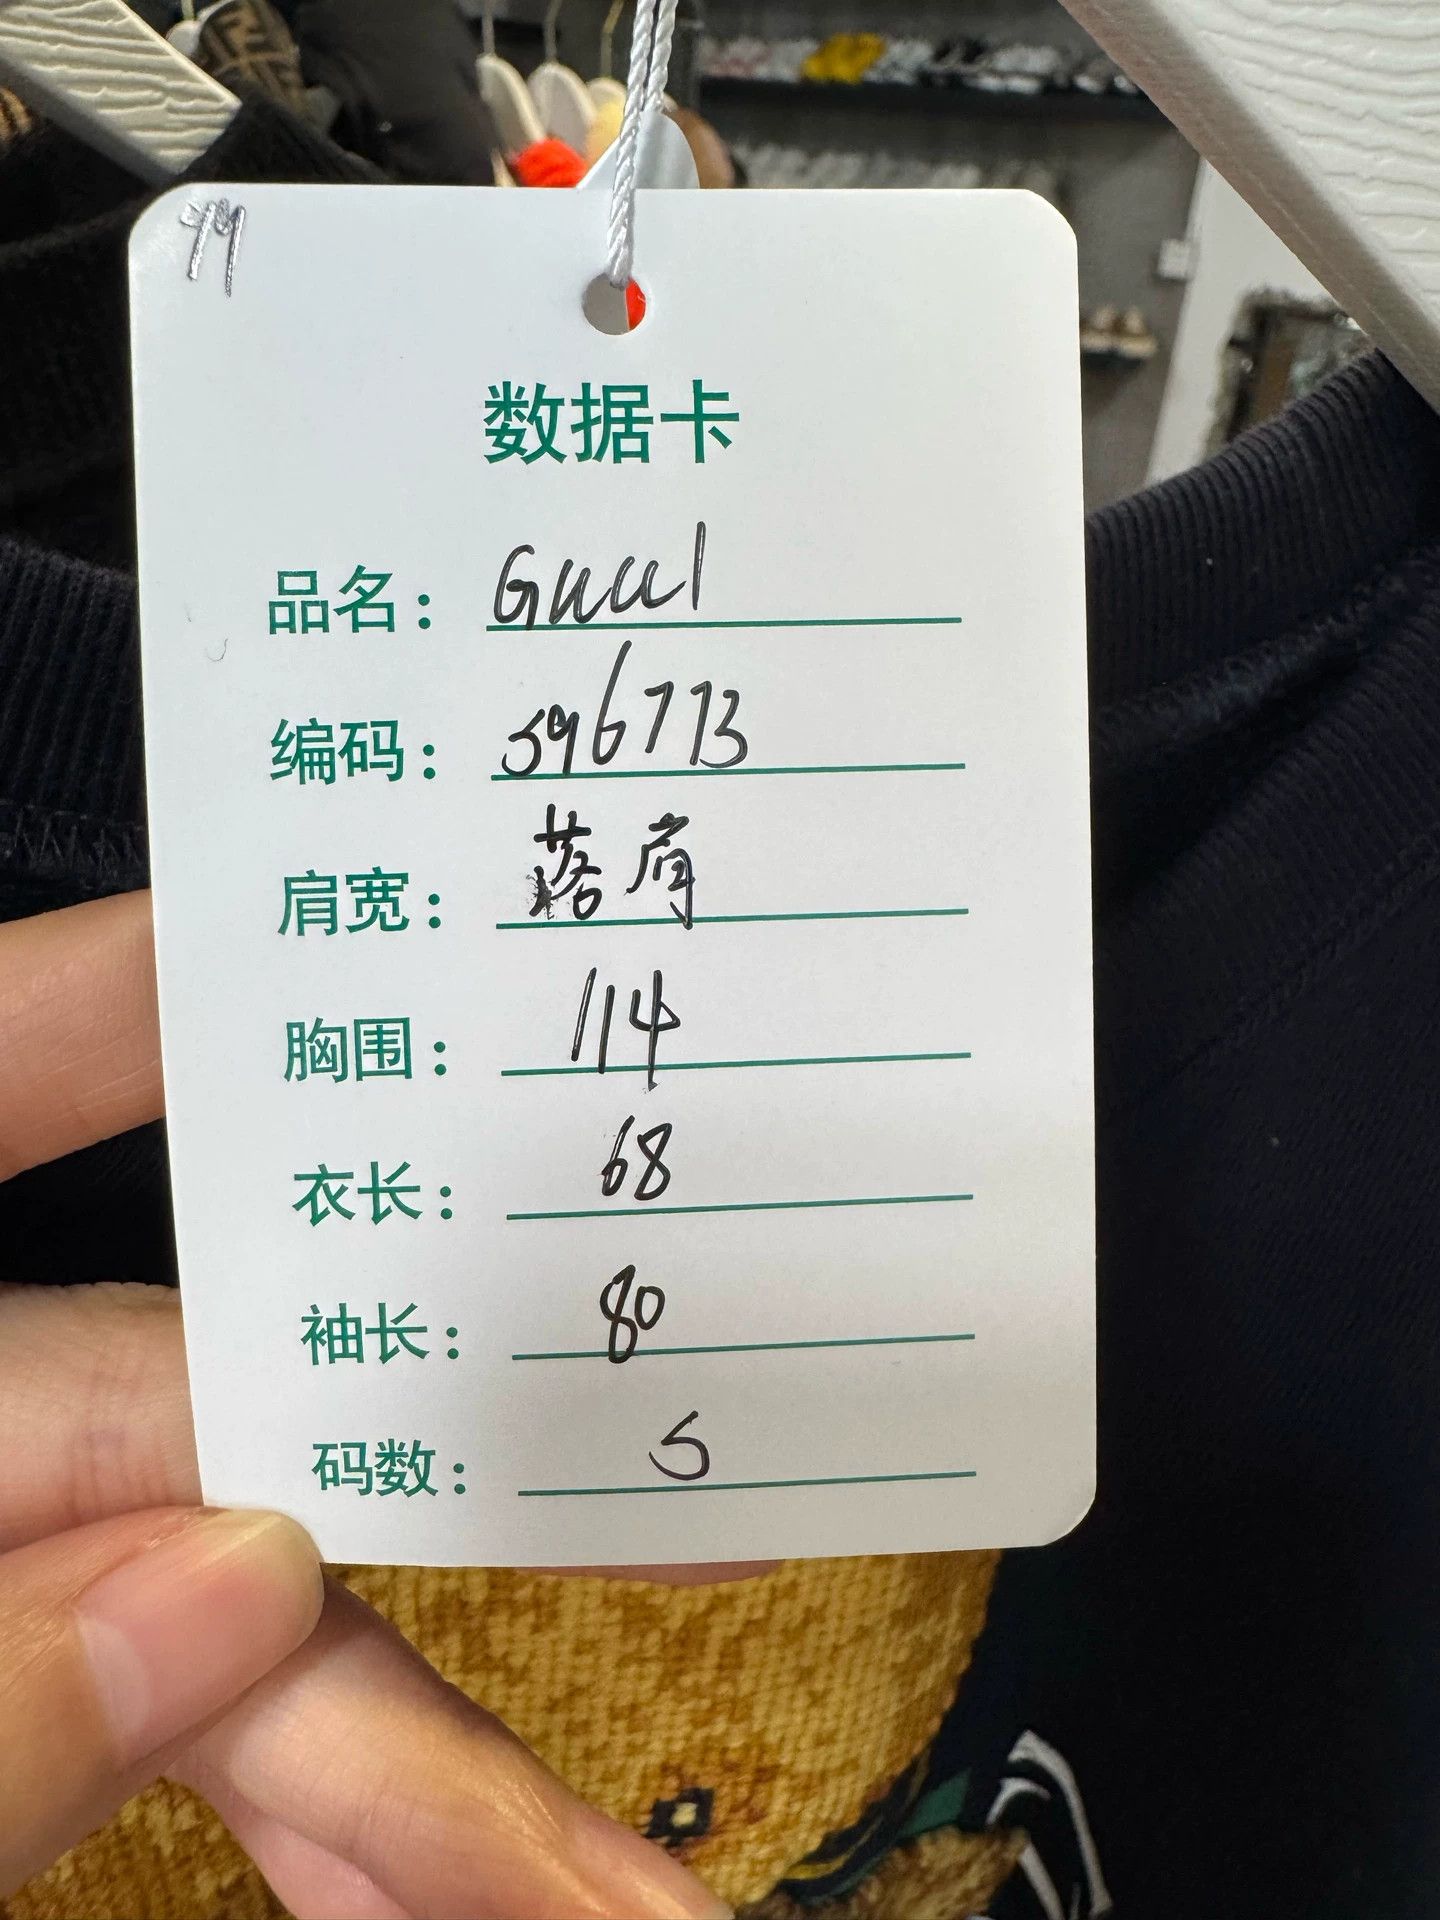 99
数据卡
品名：Gucci
编码：596773
肩宽：落肩
胸围：114
衣长：68
袖长：80
码数：S